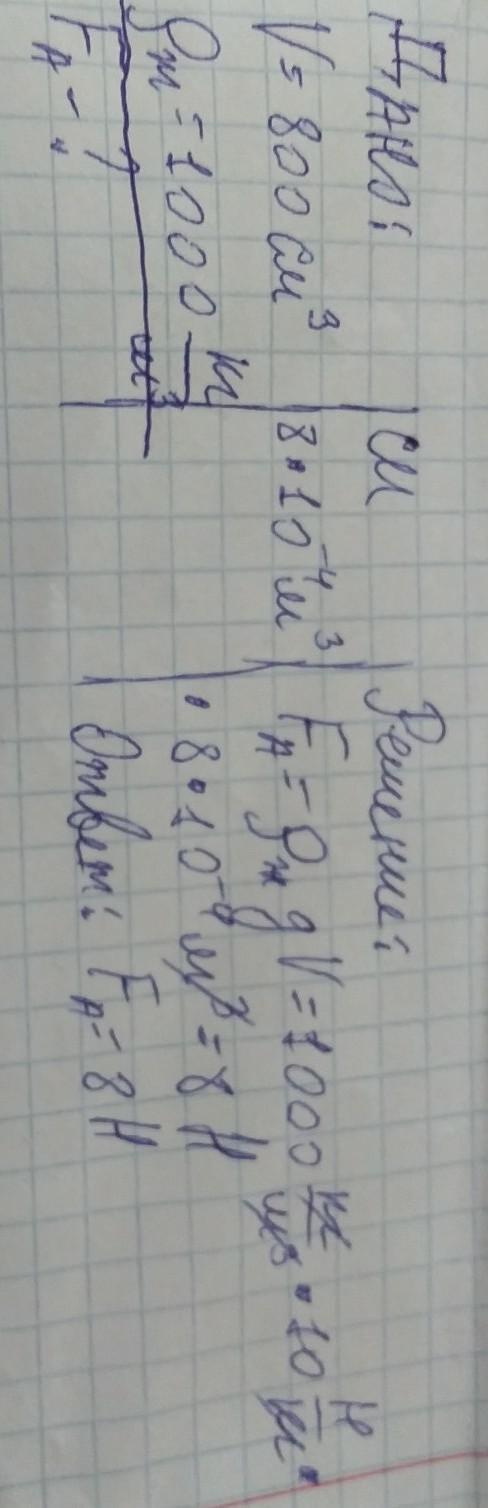 Дано:
V = 800 см³
ρж = 1000 кг/м³
FА - ?
СИ
8·10⁻⁴ м³
Решение:
FА = ρж g V = 1000 кг/м³ · 10 Н/кг ·
· 8·10⁻⁴ м³ = 8 Н
Ответ: FА = 8 Н